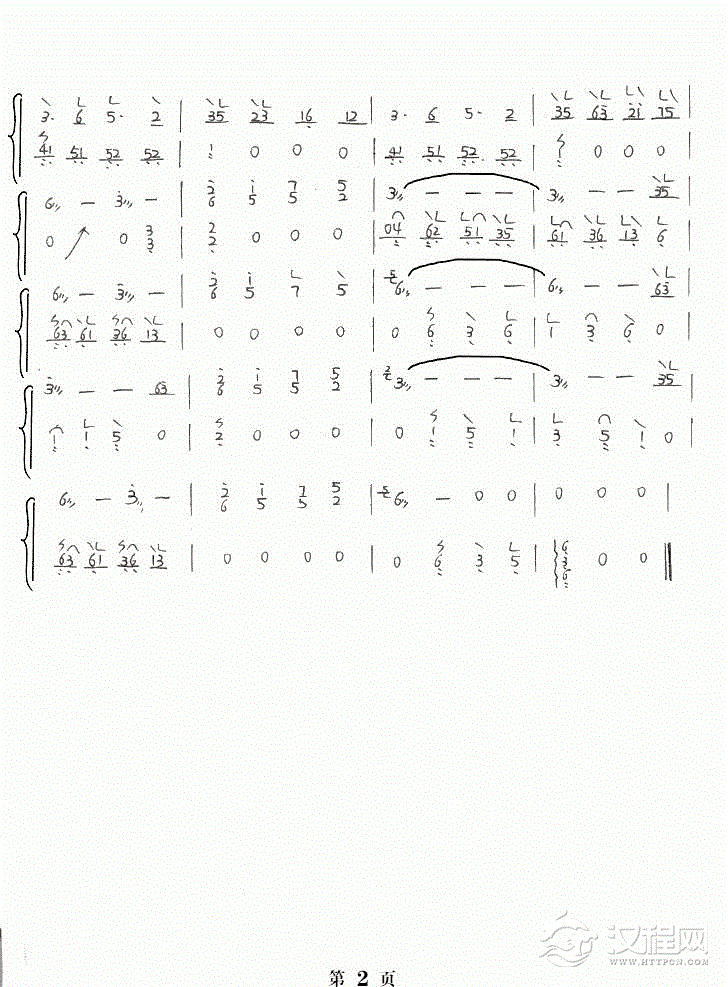 3· 6 5· 2 | 35 23 16 12 | 3· 6 5· 2 | 35 63 21 75 |
41 51 52 52 | 1 0 0 0 | 41 51 52 52 | 1 0 0 0 |
6 — 3 — | 2 1 7 5 | 3 — — — | 3 — — 35 |
6 5 5 2
0 0 3 | 2 0 0 0 | 04 62 51 35 | 61 36 13 6 |
3 2
6 — 3 — | 2 1 L \ | 5 6 — — — | 6 — — 63 |
6 5 7 5
63 61 36 13 | 0 0 0 0 | 0 6 3 6 | 1 3 6 0 |
3 — — 63 | 2 1 7 5 | 3 — — — | 3 — — 35 |
6 5 5 2
1 1 5 0 | 2 0 0 0 | 0 1 5 1 | 3 5 1 0 |
6 — 3 — | 2 1 7 5 | 5 6 — 0 0 | 0 0 0 0 |
6 5 5 2
63 61 36 13 | 0 0 0 0 | 0 6 3 5 | 6 0 0
3
6
汉程网
WWW.HTTPCN.COM
第 2 页